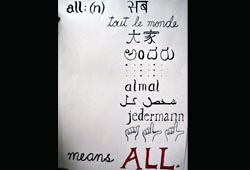 all: (n) सब
tout le monde
大家
అందరు
almal
شخص كل
jedermann
means ALL.